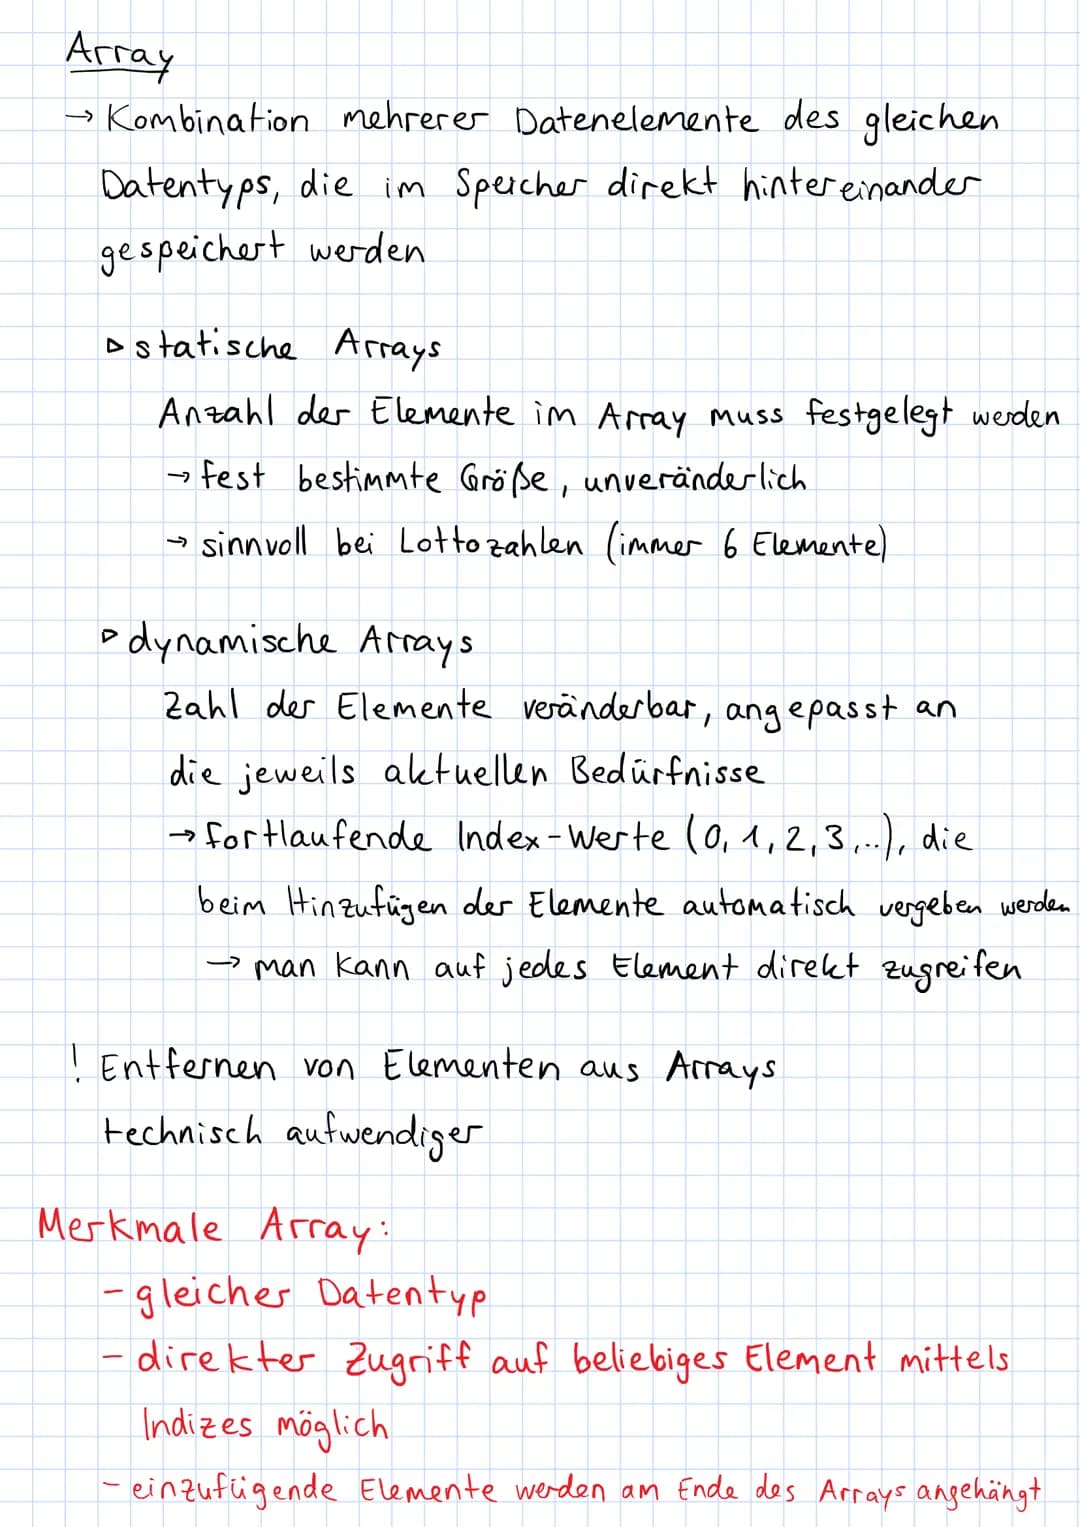 Array
→ Kombination mehrerer Datenelemente des gleichen
Datentyps, die im Speicher direkt hintereinander
gespeichert werden
▷ statische Arrays
Anzahl der Elemente im Array muss festgelegt werden
→ fest bestimmte Größe, unveränderlich
→ sinnvoll bei Lottozahlen (immer 6 Elemente)
▷ dynamische Arrays
Zahl der Elemente veränderbar, angepasst an
die jeweils aktuellen Bedürfnisse
→ fortlaufende Index-Werte (0, 1, 2, 3,..), die
beim Hinzufügen der Elemente automatisch vergeben werden
→ man kann auf jedes Element direkt zugreifen
! Entfernen von Elementen aus Arrays
technisch aufwendiger
Merkmale Array:
- gleicher Datentyp
- direkter Zugriff auf beliebiges Element mittels
Indizes möglich
- einzufügende Elemente werden am Ende des Arrays angehängt